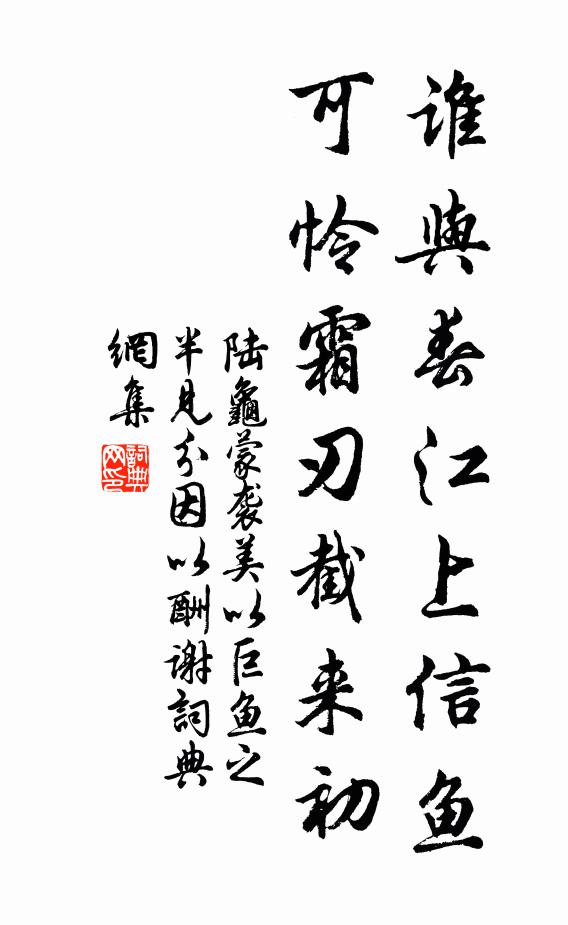 谁與春江上信鱼
可怜霜刃截来初
陆龜蒙袭美以巨鱼之
半見分因以酬谢詞典
網集
詞典
网印